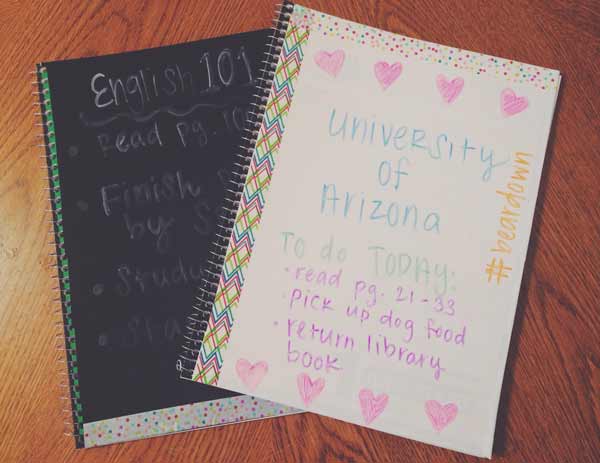 English 101
• Read pg. 10
Finish
by S
• Study
• Sta
University
of
Arizona
To do TODAY:
• read pg. 21-33
• pick up dog food
• return library
book
#beardown